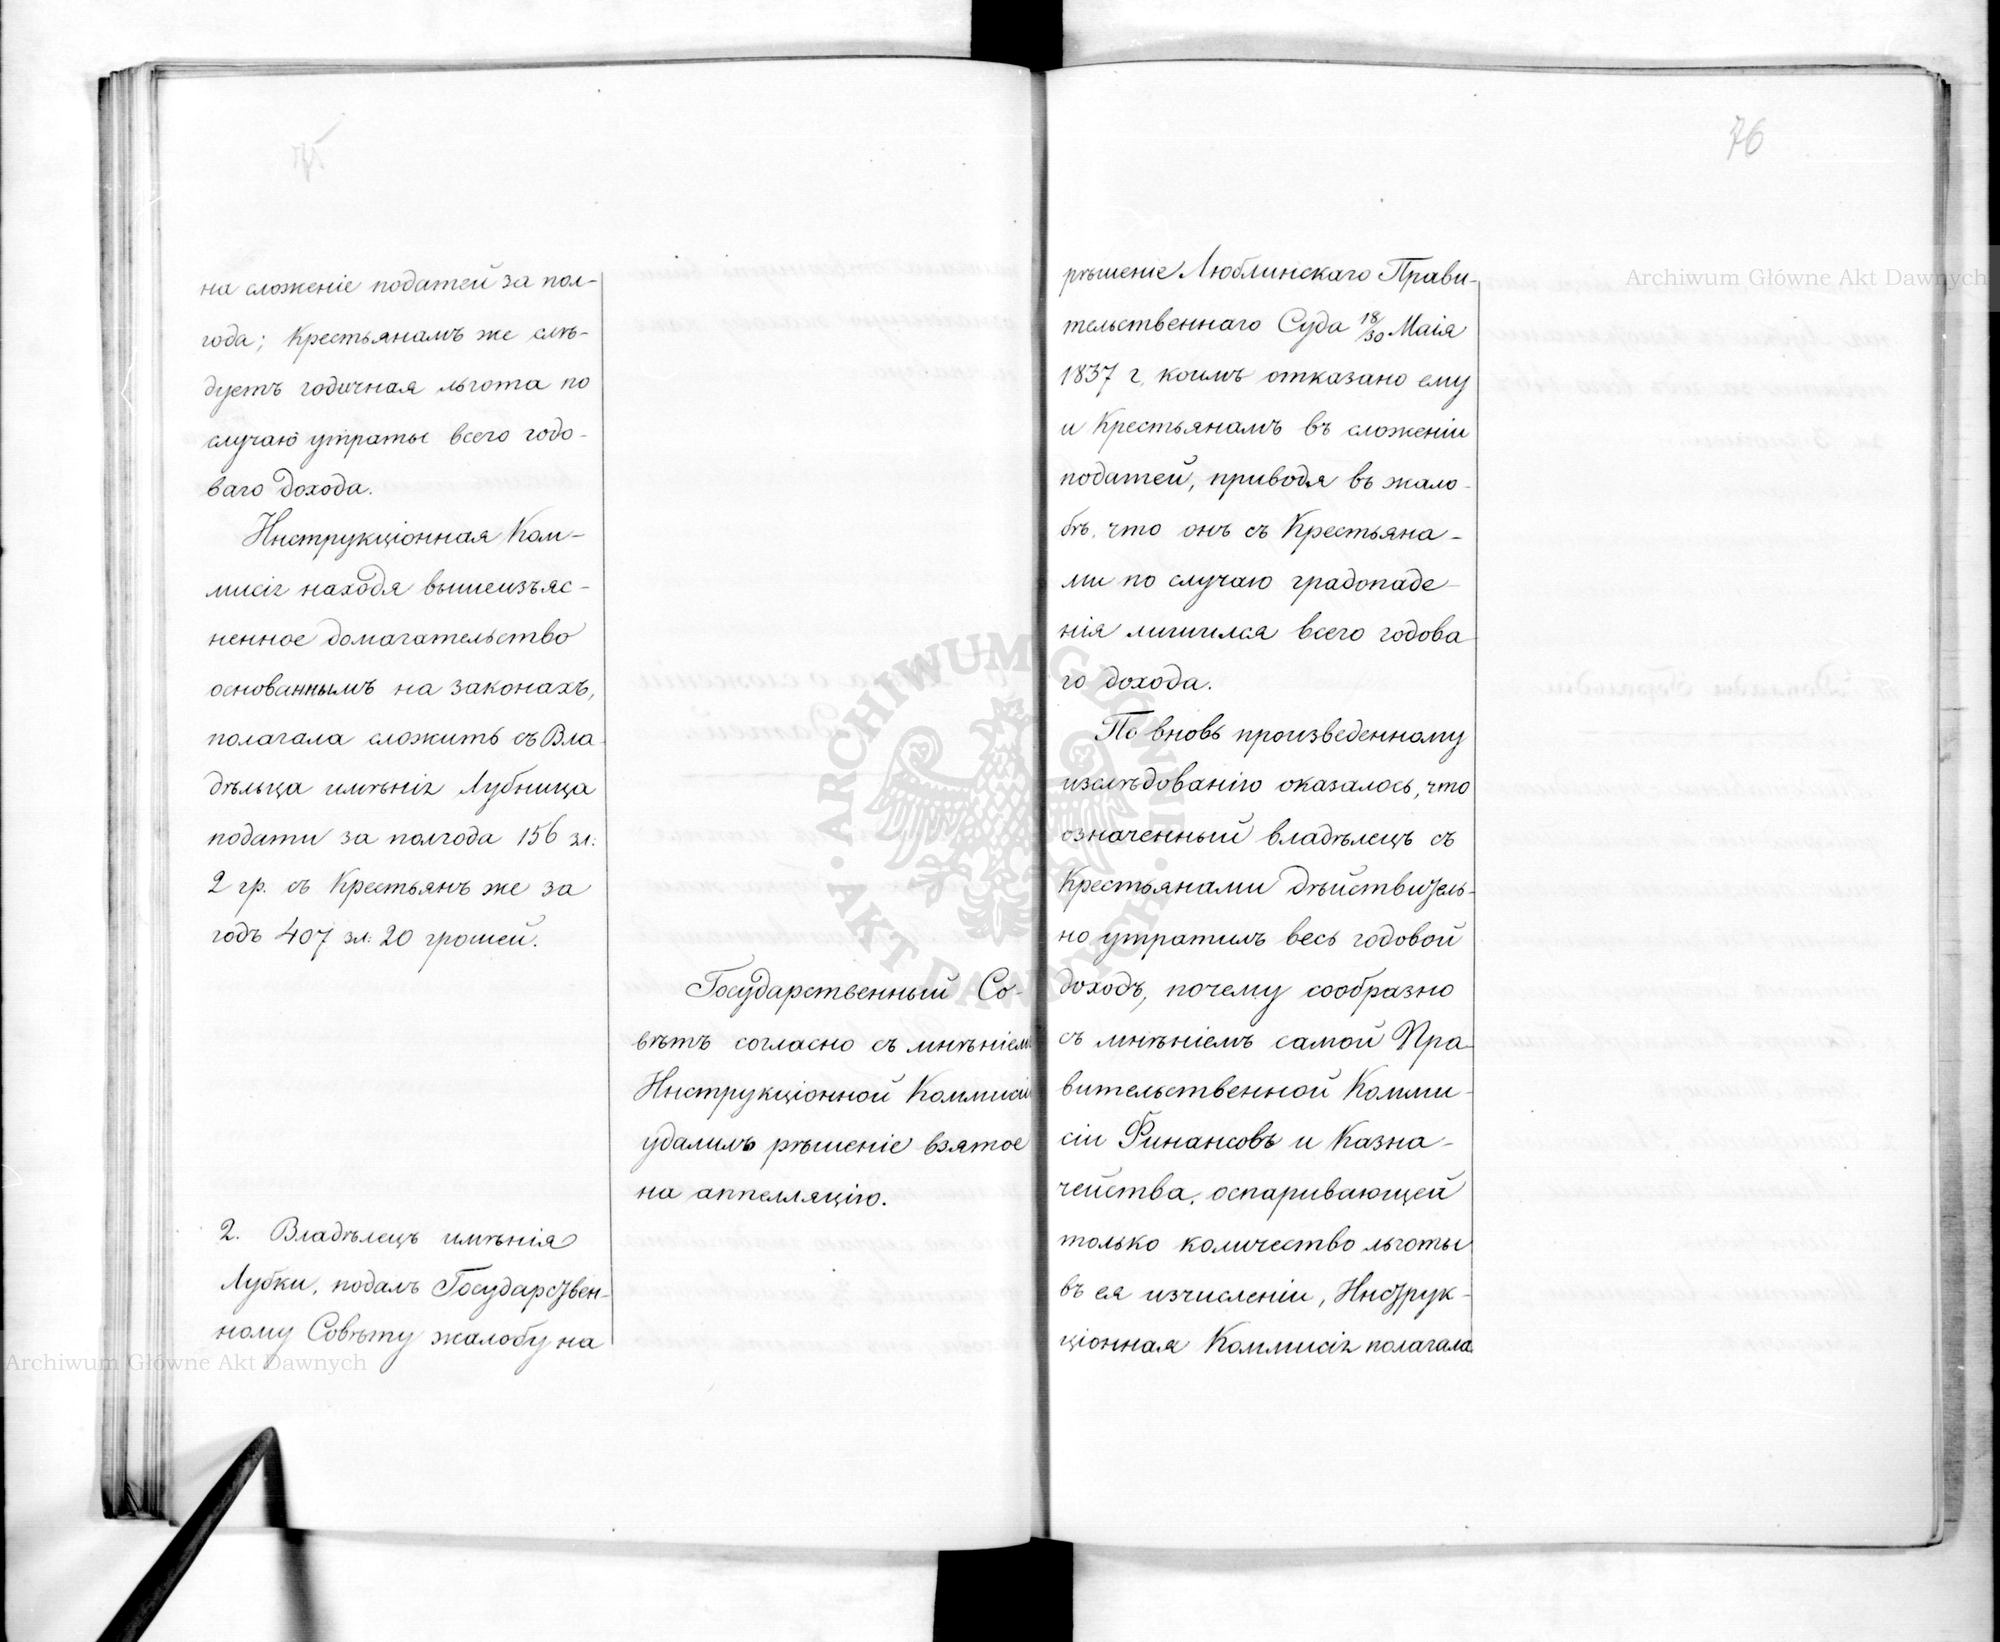 на сложеніе податей за пол-
года; Крестьянамъ же слѣ-
дуетъ годичная льгота по
случаю утраты всего годо-
ваго дохода.
Инструкціонная Ком-
мисія находя вышеизъяс-
ненное домагательство
основаннымъ на законахъ,
полагала сложить съ Вла-
дѣльца имѣнія Лубница
подати за полгода 156 зл:
2 гр. съ Крестьянъ же за
годъ 407 зл: 20 грошей.
Государственный Со-
вѣтъ согласно съ мнѣніемъ
Инструкціонной Коммисіи
удалилъ рѣшеніе взятое
на аппелляцію.
2. Владѣлецъ имѣнія
Лубки, подалъ Государствен-
ному Совѣту жалобу на
76
рѣшеніе Люблинскаго Прави-
тельственнаго Суда 18/30 Маія
1837 г, коимъ отказано ему
и Крестьянамъ въ сложеніи
податей, приводя въ жало-
бѣ, что онъ съ Крестьяна-
ми по случаю градопаде-
нія лишился всего годова
го дохода.
По вновь произведенному
изслѣдованію оказалось, что
означенный владѣлецъ съ
Крестьянами дѣйствитель-
но утратилъ весь годовой
доходъ, почему сообразно
съ мнѣніемъ самой Пра-
вительственной Комми-
сіи Финансовъ и Казна-
чейства, оспаривающей
только количество льготы
въ ея изчисленіи, Инструк-
ціонная Коммисія полагала
Archiwum Główne Akt Dawnych
Archiwum Główne Akt Dawnych
ARCHIWUM GŁÓWNE AKT DAWNYCH